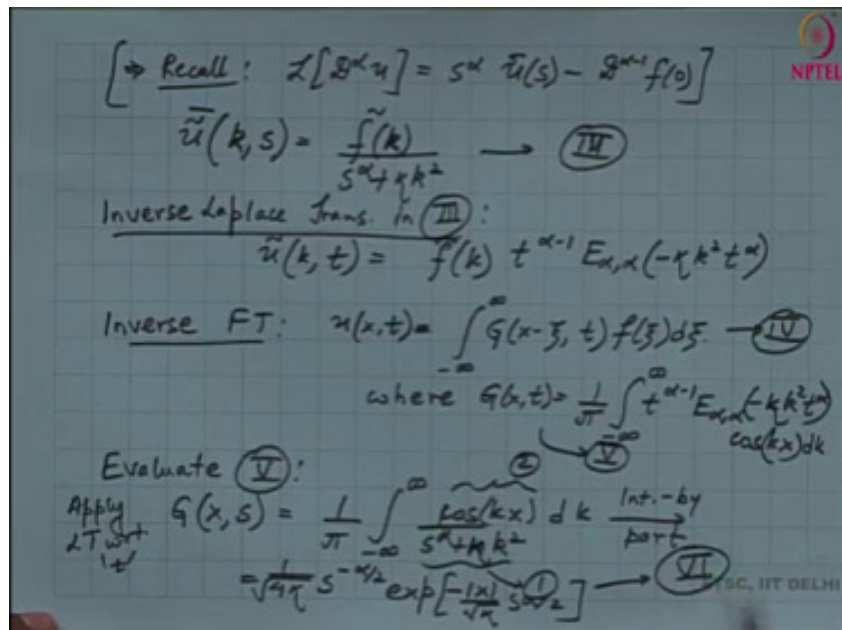 [⇒ Recall: ℒ[𝒟^α u] = s^α ū(s) − 𝒟^{α-1} f(0)]
NPTEL
ũ̄(k,s) = f̃(k) / (s^α + ηk²) → (III)
Inverse Laplace Trans. in (III):
ũ(k,t) = f̃(k) t^{α-1} E_{α,α}(-ηk²t^α)
Inverse FT: u(x,t) = ∫_{-∞}^{∞} G(x-ξ, t) f(ξ)dξ. → (IV)
where G(x,t) = 1/π ∫_{-∞}^{∞} t^{α-1} E_{α,α}(-ηk²t^α) cos(kx)dk
→ (V)
Evaluate (V):
②
Apply LT wrt 't' G(x,s) = 1/π ∫_{-∞}^{∞} cos(kx) / (s^α + ηk²) dk Int.-by part →
①
= 1/√4η s^{-α/2} exp[-|x|/√η s^{α/2}] → (VI)
SC, IIT DELHI